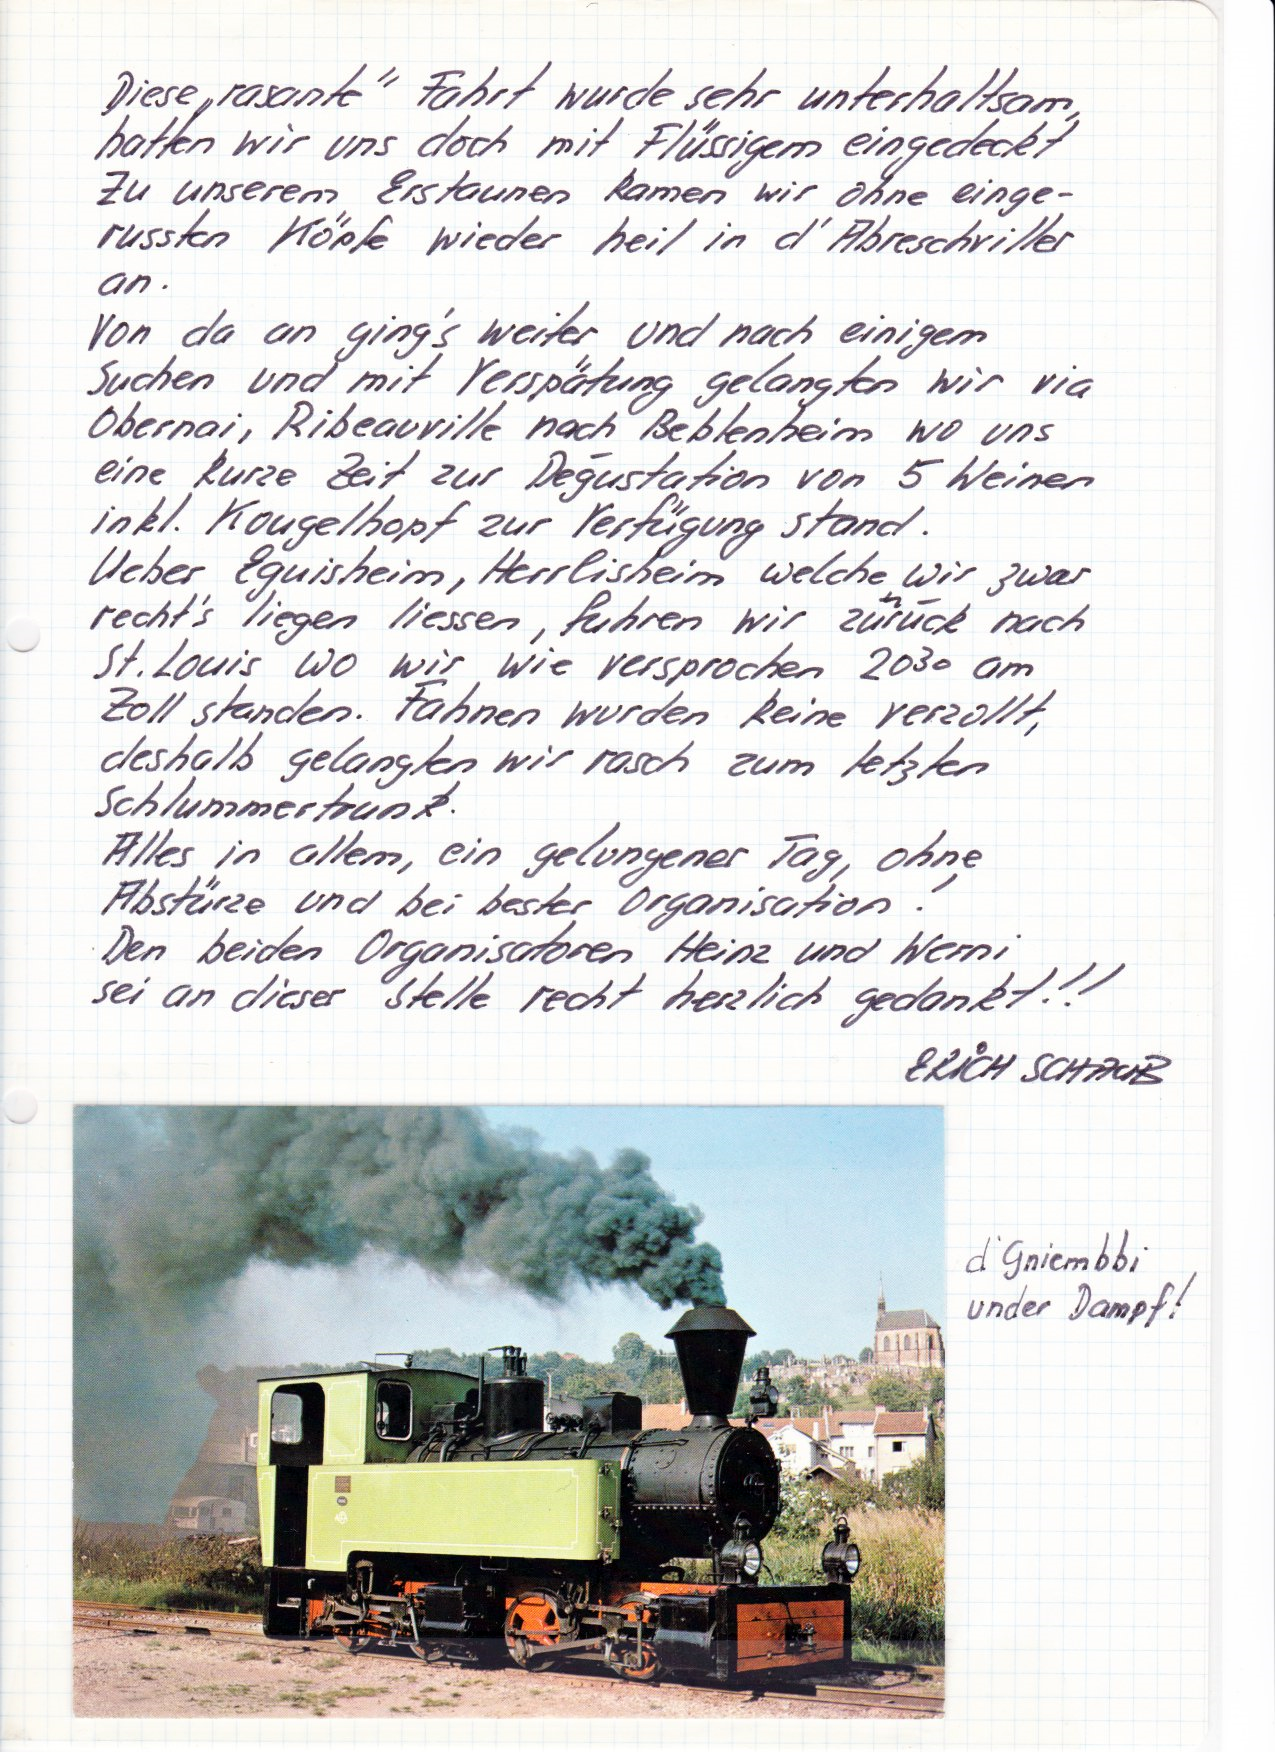 Diese „rasante" Fahrt wurde sehr unterhaltsam,
hatten wir uns doch mit Flüssigem eingedeckt
Zu unserem Erstaunen kamen wir ohne einge-
russten Köpfe wieder heil in d'Abreschviller
an.
Von da an ging's weiter und nach einigem
Suchen und mit Verspätung gelangten wir via
Obernai, Ribeauville nach Beblenheim wo uns
eine kurze Zeit zur Degustation von 5 Weinen
inkl. Kougelhopf zur Verfügung stand.
Ueber Eguisheim, Herrlisheim welche wir zwar
recht's liegen liessen, fuhren wir zurück nach
St. Louis wo wir wie versprochen 20³⁰ am
Zoll standen. Fahnen wurden keine verzollt,
deshalb gelangten wir rasch zum letzten
Schlummertrunk.
Alles in allem, ein gelungener Tag, ohne
Abstürze und bei bester Organisation!
Den beiden Organisatoren Heinz und Werni
sei an dieser Stelle recht herzlich gedankt!!!
ERICH SCHAUB
d'Gniembbi
under Dampf!